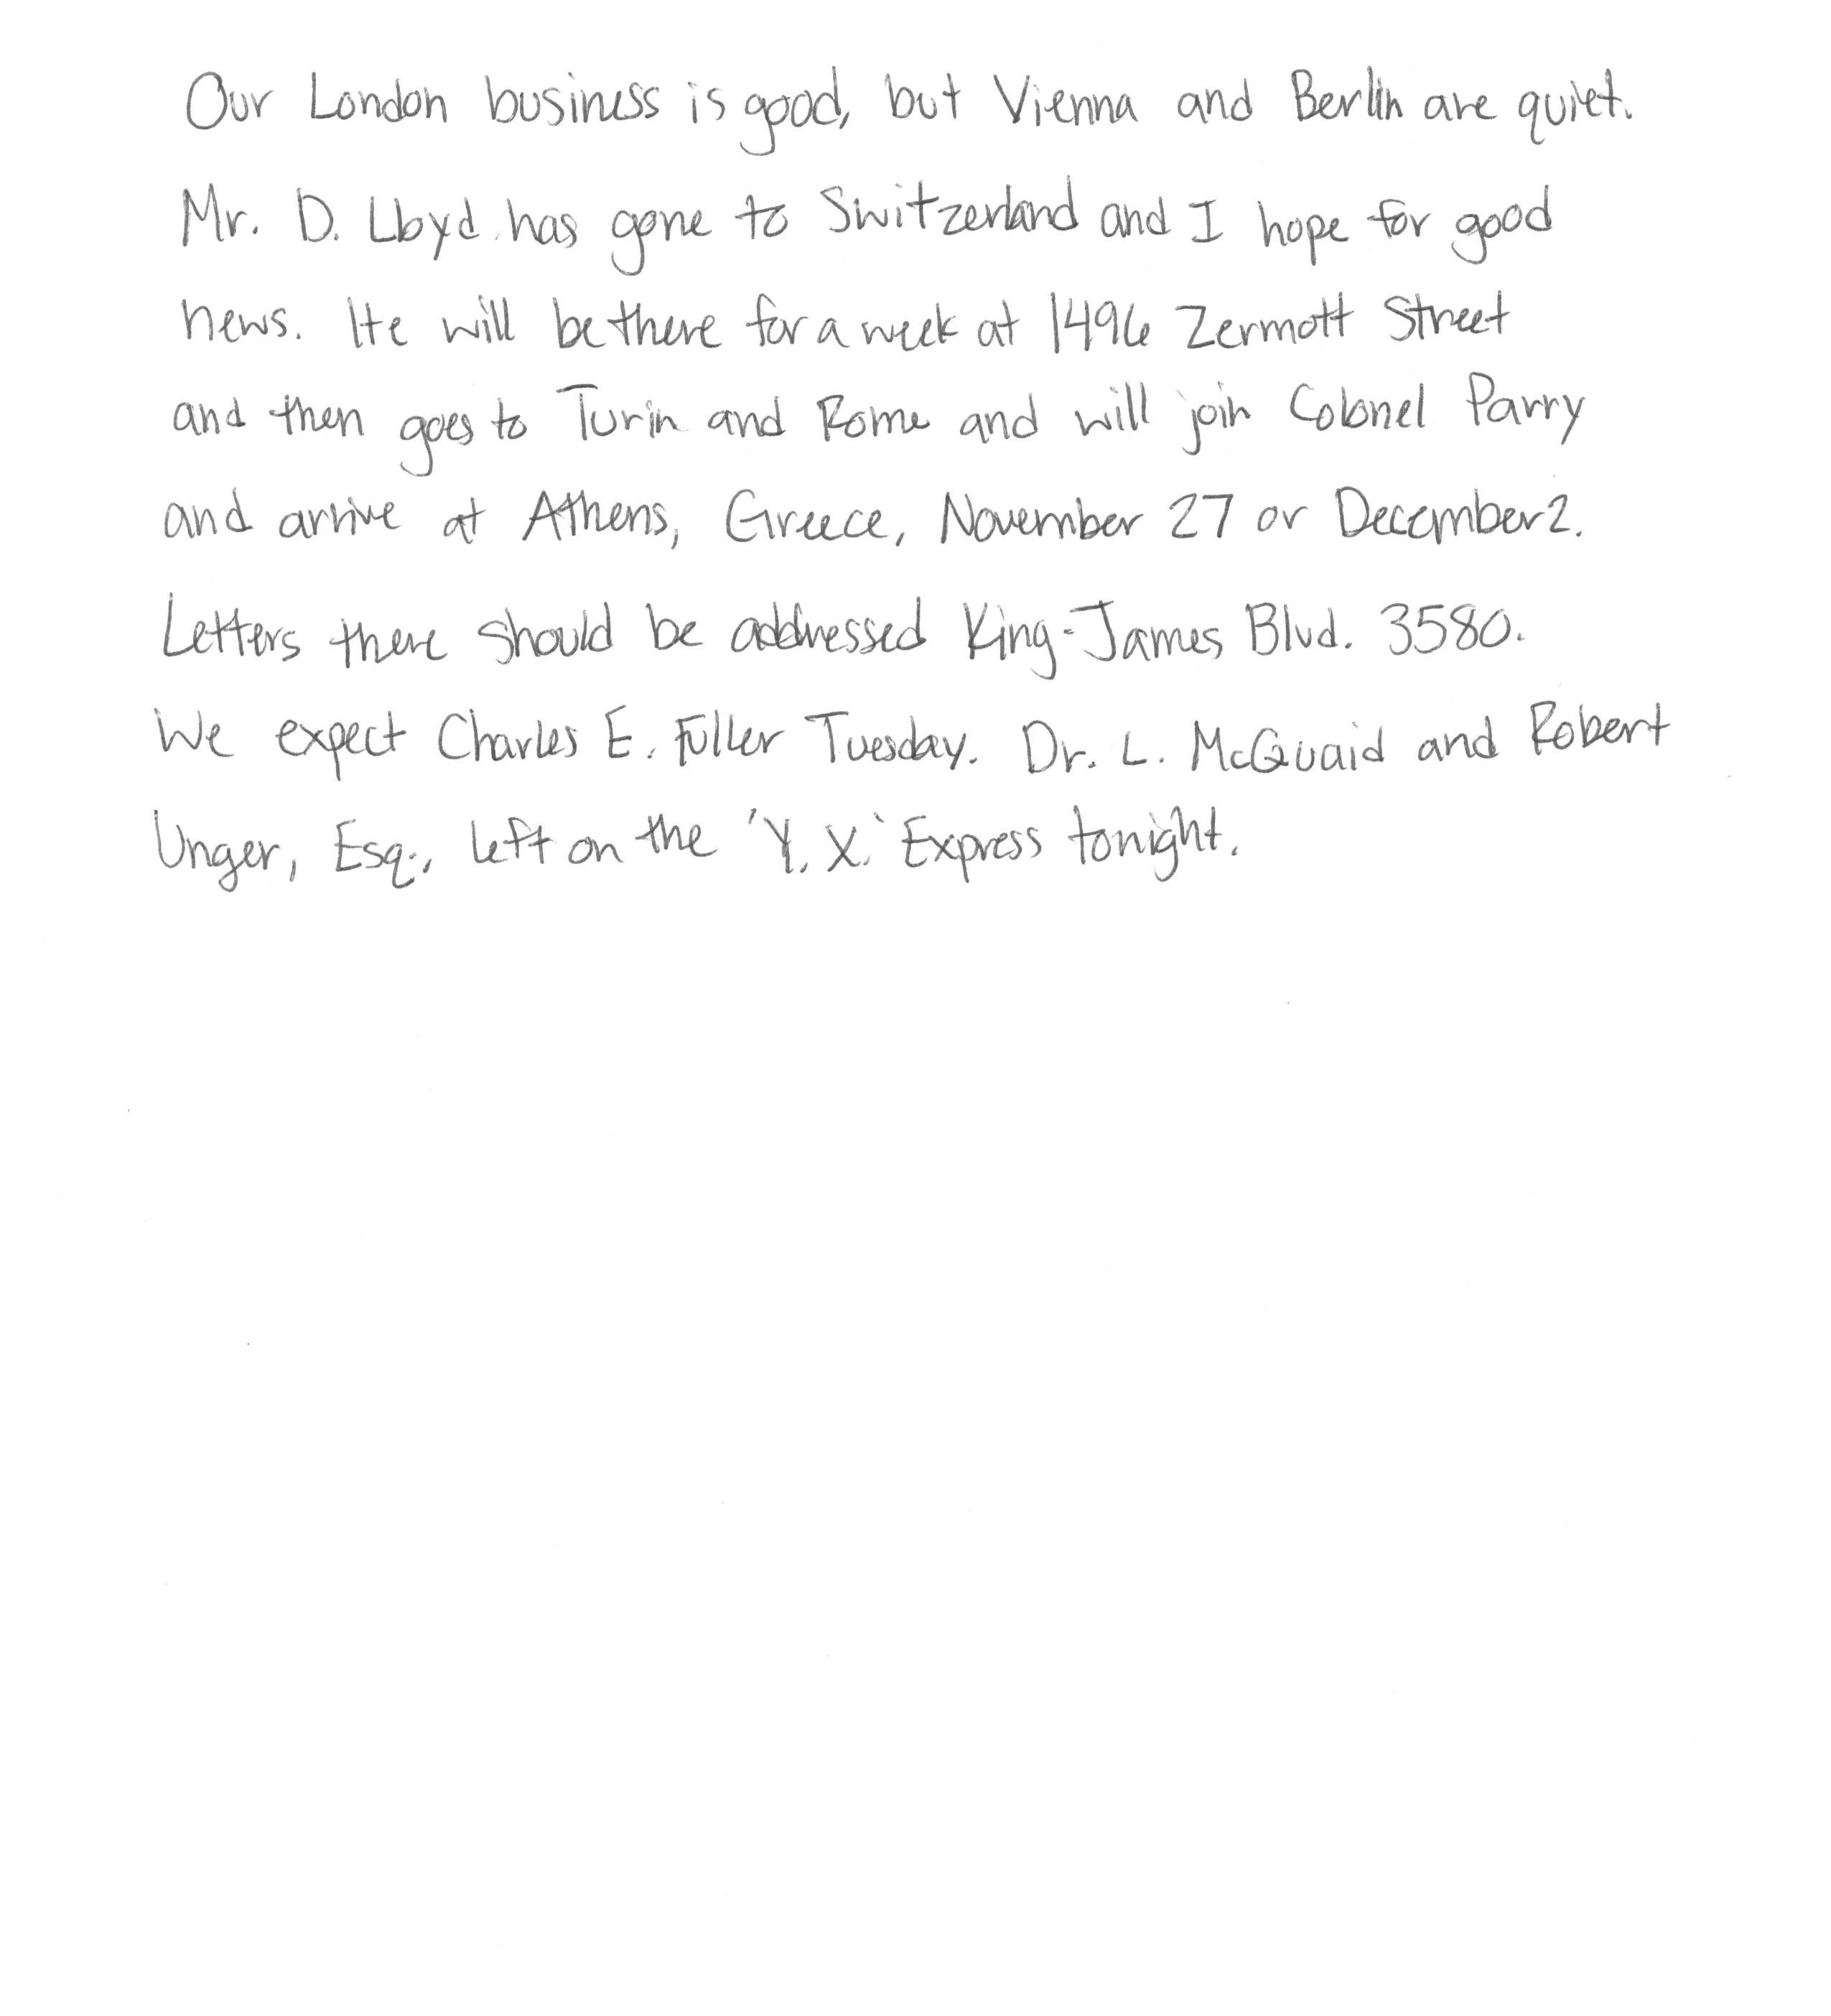 Our London business is good, but Vienna and Berlin are quiet.
Mr. D. Lloyd has gone to Switzerland and I hope for good
news. He will be there for a week at 1496 Zermott Street
and then goes to Turin and Rome and will join Colonel Parry
and arrive at Athens, Greece, November 27 or December 2.
Letters there should be addressed King-James Blvd. 3580.
We expect Charles E. Fuller Tuesday. Dr. L. McQuaid and Robert
Unger, Esq., left on the 'Y. X.' Express tonight.